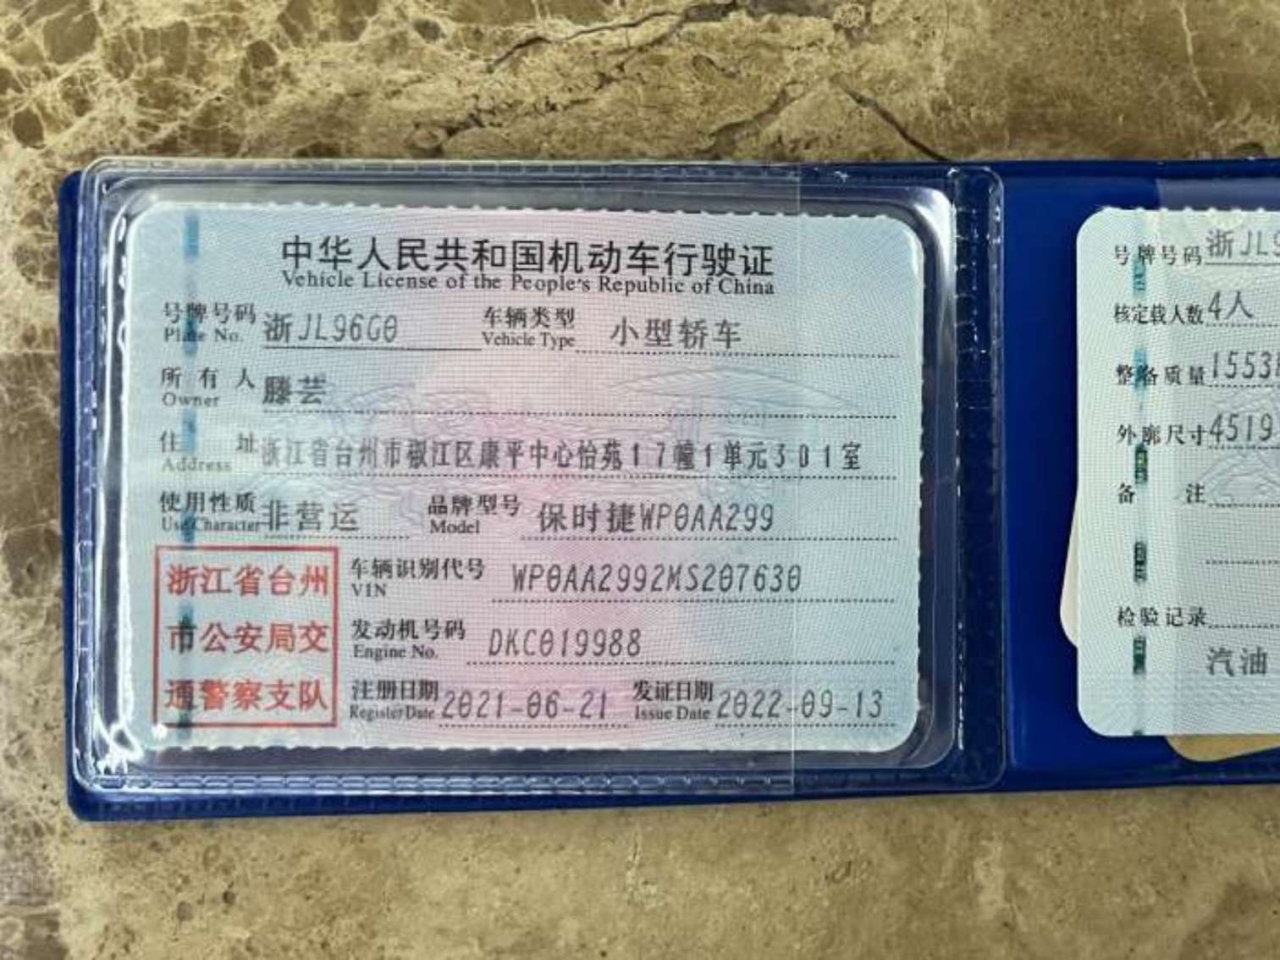 中华人民共和国机动车行驶证
Vehicle License of the People's Republic of China
号牌号码 浙JL96G0 车辆类型 小型轿车
Plate No. Vehicle Type
所有人 滕芸
Owner
住址 浙江省台州市椒江区康平中心怡苑17幢1单元301室
Address
使用性质 非营运 品牌型号 保时捷WP0AA299
Use Character Model
浙江省台州
市公安局交
通警察支队
车辆识别代号 WP0AA2992MS207630
VIN
发动机号码 DKC019988
Engine No.
注册日期 2021-06-21 发证日期 2022-09-13
Register Date Issue Date
号牌号码 浙JL9
核定载人数 4人
整备质量 1553
外廓尺寸 4519
备注
检验记录
汽油